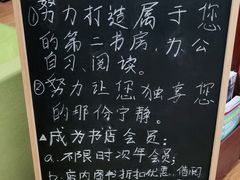 ①努力打造属于您
的第二书房,办公
自习、阅读。
②努力让您独享您
的那份宁静。
▲成为书店会员:
a.不限时次年会员;
b.店内图书折扣优惠,借阅